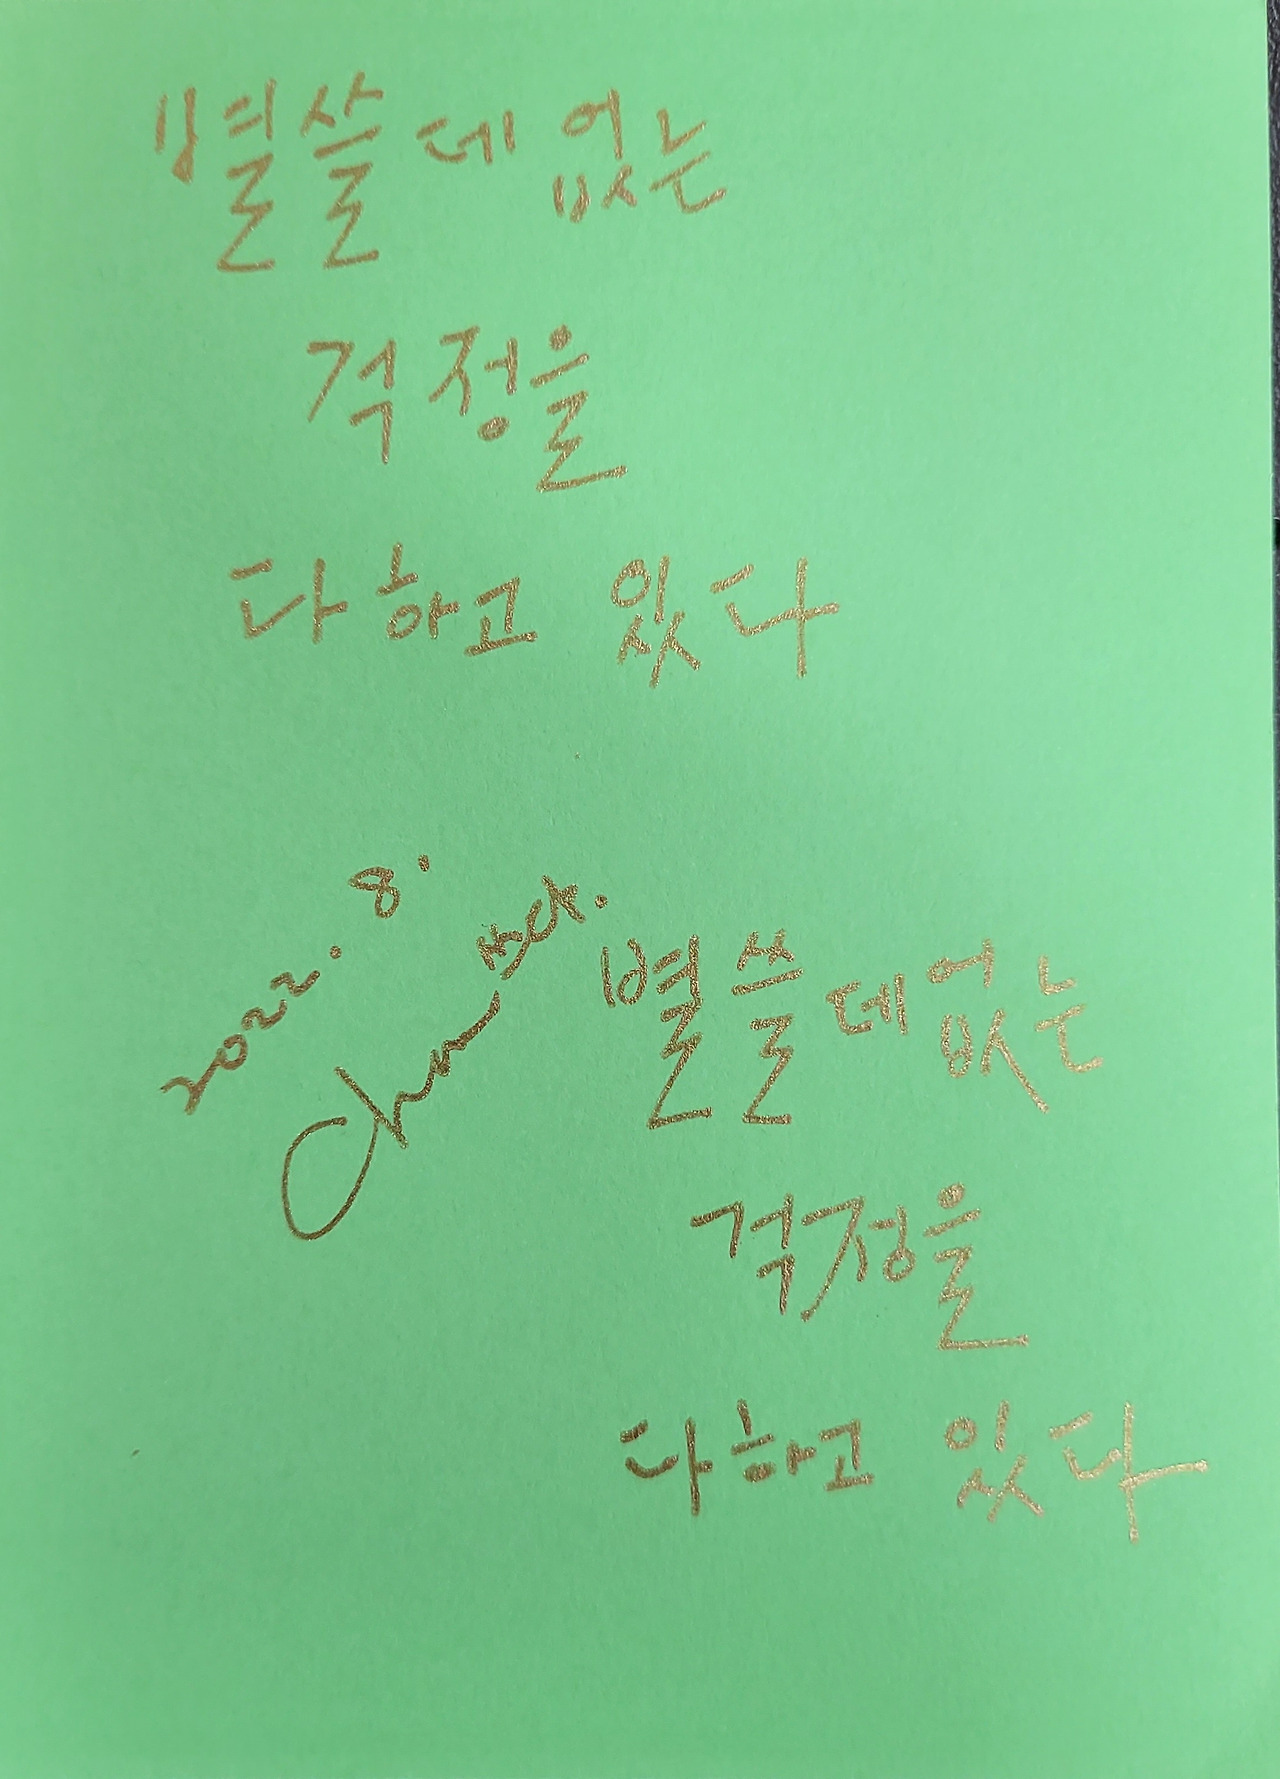 별 쓸데 없는
걱정을
다 하고 있다
2022. 8.
별 쓸데 없는
걱정을
다 하고 있다